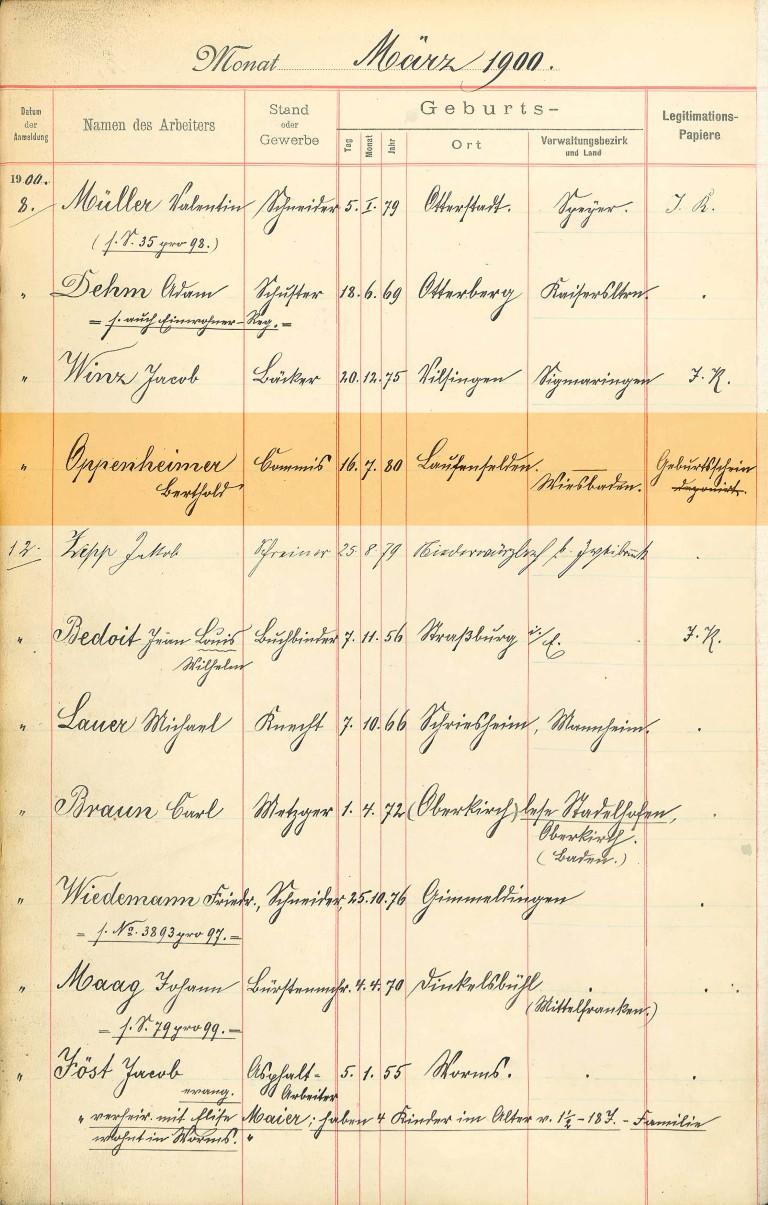 Monat März 1900.
Datum der Anmeldung
Namen des Arbeiters
Stand oder Gewerbe
Geburts-
Tag Monat Jahr
Ort
Verwaltungsbezirk und Land
Legitimations-Papiere
1900.
8. Müller Valentin Schneider 5. I. 79 Otterstadt. Speyer. J. K.
(s. S. 35 pro 98.)
" Dehm Adam Schuster 18. 6. 69 Otterberg Kaisersltrn. .
= s. auch Einwohner-Reg. =
" Winz Jacob Bäcker 20. 12. 75 Vilsingen Sigmaringen J. K.
" Oppenheimer Commis 16. 7. 80 Laufenselden. Geburtsschein
Berthold Wiesbaden. deponirt.
12. Zipp Jakob Schreiner 25 8 79
" Bedoit Jean Louis Buchbinder 7. 11. 56 Straßburg i/E. J. K.
Wilhelm
" Lauer Michael Knecht 7. 10. 66 Schriesheim, Mannheim. .
" Braun Carl Metzger 1. 4. 72 (Oberkirch) lese Stadelhofen,
Oberkirch.
(Baden.)
" Wiedemann Friedr., Schneider, 25. 10. 76 Gimmeldingen .
= s. No. 3893 pro 97. =
" Maag Johann Bürstenmchr. 4. 4. 70 Dinkelsbühl .
(Mittelfranken.)
= s. S. 79 pro 99. =
" Föst Jacob Asphalt- 5. 1. 55 Worms. . .
evang. Arbeiter
" verheir. mit Elise Maier; haben 4 Kinder im Alter v. 1½-18 J. - Familie
wohnt in Worms. "